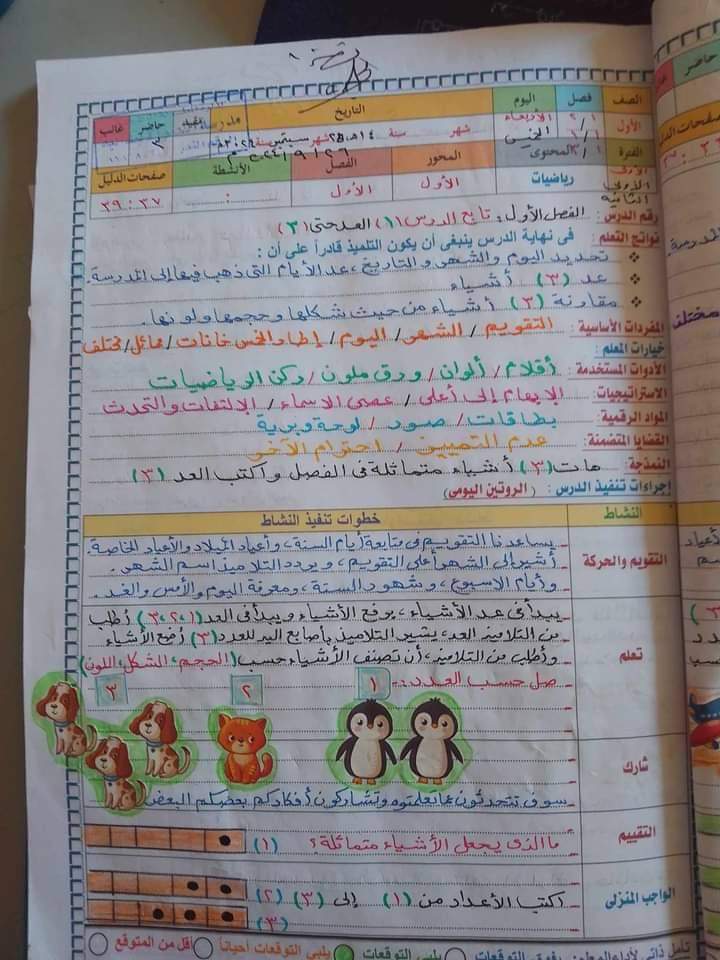 الصف فصل اليوم التاريخ حاضر غائب
الأول ١/٢ الأربعاء
١/٦ الخميس ١٤ هـ، ٢٥ شهر سبتمبر سنة
شهر سنة
٢٠٢٤/٩/٢٦
٣
الفترة المحتوى المحور الفصل الأنشطة صفحات الدليل
الأولى
الثانية
رياضيات الأول الأول : ٣٧ : ٣٩
رقم الدرس : الفصل الأول: تابع الدرس (١) العد حتى (٣)
نواتج التعلم : في نهاية الدرس ينبغى أن يكون التلميذ قادراً على أن :
تحديد اليوم والشهر والتاريخ، عد الأيام التى ذهب فيها إلى المدرسة.
عد (٣) أشياء
مقارنة (٣) أشياء من حيث شكلها وحجمها ولونها.
المفردات الأساسية : التقويم / الشهر / اليوم / إطار الخمس خانات / مماثل / مختلف
خيارات المعلم :
الأدوات المستخدمة : أقلام / ألوان / ورق ملون / ركن الرياضيات
الاستراتيجيات : الإبهام إلى أعلى / عصى الاسماء / الإلتفات والتحدث
المواد الرقمية : بطاقات / صور / لوحة وبرية
القضايا المتضمنة : عدم التمييز / احترام الآخر
النمذجة : هات (٣) أشياء متماثلة فى الفصل واكتب العدد (٣)
إجراءات تنفيذ الدرس : (الروتين اليومى)
النشاط خطوات تنفيذ النشاط
التقويم والحركة
يساعدنا التقويم فى متابعة أيام السنة، وأعياد الميلاد والأعياد الخاصة.
أشير إلى الشهر أعلى التقويم، ويردد التلاميذ اسم الشهر.
وأيام الاسبوع، وشهور السنة، ومعرفة اليوم والأمس والغد.
تعلم
يبدأ فى عد الأشياء، يرفع الأشياء ويبدأ فى العد (١،٢،٣) أطلب
من التلاميذ العد، يشير التلاميذ بأصابع اليد للعدد (٣) أضع الأشياء
وأطلب من التلاميذ، أن تصنف الأشياء حسب (الحجم، الشكل، اللون)
صل حسب العدد:-
١ ٢ ٣
شارك
سوف تتحدثون عما تعلمتوه وتشاركون أفكاركم بعضكم البعض
التقييم
ما الذى يجعل الأشياء متماثلة؟ (١)
الواجب المنزلى
اكتب الأعداد من (١) إلى (٣) (٢)
(٣)
يلبي التوقعات يلبي التوقعات أحياناً أقل من المتوقع